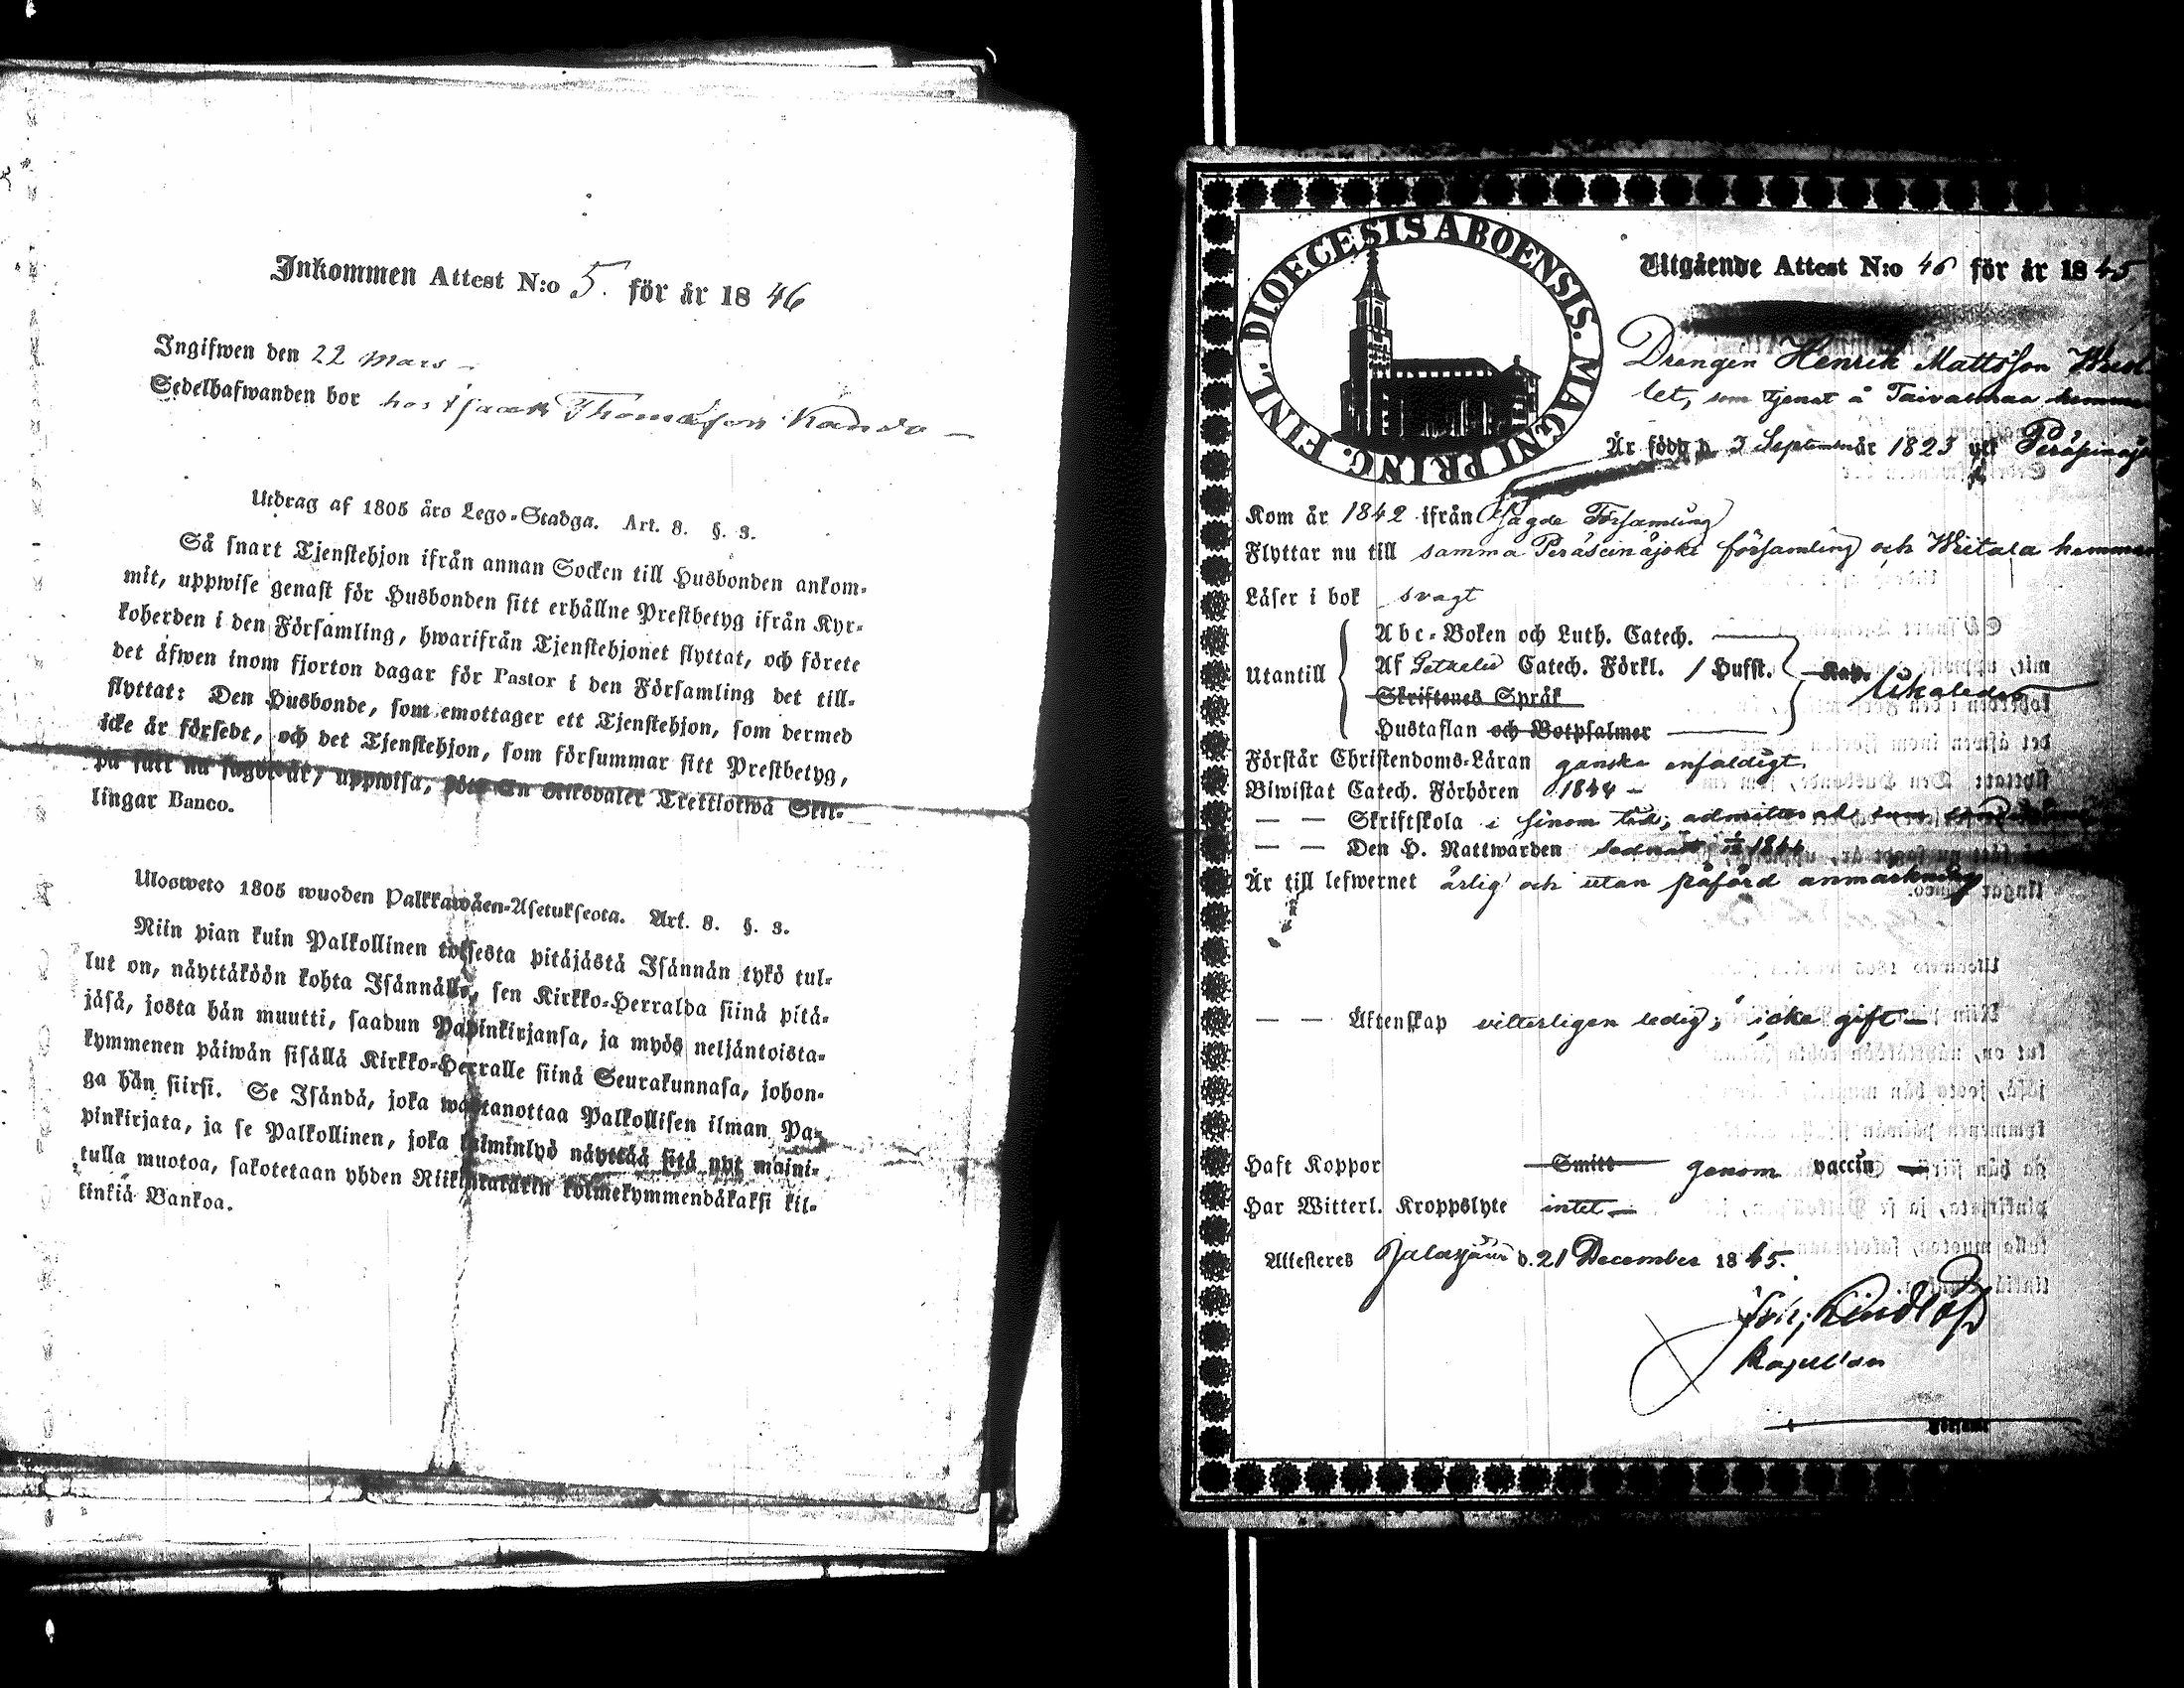 Inkommen Attest N:o 5. för år 1846
Ingifwen den 22 Mars –
Sedelhafwanden bor hos Isaack Thomasson Kando –
Utdrag af 1805 års Lego-Stadga. Art. 8. §. 3.
Så snart Tjenstehjon ifrån annan Socken till Husbonden ankom-
mit, uppwise genast för Husbonden sitt erhållne Prestbetyg ifrån Kyr-
koherden i den Församling, hwarifrån Tjenstehjonet flyttat, och förete
det äfwen inom fjorton dagar för Pastor i den Församling det till-
flyttat: Den Husbonde, som emottager ett Tjenstehjon, som dermed
icke är försedt, och det Tjenstehjon, som försummar sitt Prestbetyg,
på sätt nu sagdt är, uppwisa, böte En Riksdaler Trettiotwå Skil-
lingar Banco.
Ulosweto 1805 wuoden Palkkawäen-Asetuksesta. Art. 8. §. 3.
Niin pian kuin Palkollinen toisesta pitäjästä Isännän tykö tul-
lut on, näyttäköön kohta Isännälle, sen Kirkko-Herralda siinä pitä-
jäsä, josta hän muutti, saadun Papinkirjansa, ja myös neljäntoista-
kymmenen päiwän sisällä Kirkko-Herralle siinä Seurakunnasa, johon-
ga hän siirsi. Se Isändä, joka wastanottaa Palkollisen ilman Pa-
pinkirjata, ja se Palkollinen, joka laiminlyö näyttää sitä nyt maini-
tulla muotoa, sakotetaan yhden Riikintalarin kolmekymmendäkaksi kil-
linkiä Bankoa.
DIOECESIS ABOENSIS. MAGNI PRINC. FINL.
Utgående Attest N:o 46 för år 1845
Drengen Henrik Mattsson
let, som tjenat å Taivalmaa
Är född d. 3 September år 1823 uti
Kom år 1842 ifrån sagde Församling
Flyttar nu till samma Peräseinäjoki församling och Wietala hemman
Läser i bok svagt
Utantill
Abc-Boken och Luth. Catech.
Af Getzelii Catech. Förkl. / Husst. Kap.
likaledes
Skriftenes Språk
Hustaflan och Botpsalmer
Förstår Christendoms-Läran ganska enfaldigt
Biwistat Catech. Förhören 1844 –
— — Skriftskola i sinom tid; admitterad
— — Den H. Nattwarden sednast 1844
Är till lefwernet ärlig och utan påförd anmärkning
— — Äktenskap vitterligen ledig; icke gift –
Haft Koppor Smitt genom vaccin
Har Witterl. Kroppslyte intet –
Attesteres Jalasjärvi d. 21 December 1845.
Lindlöf
Kapellan
Församl